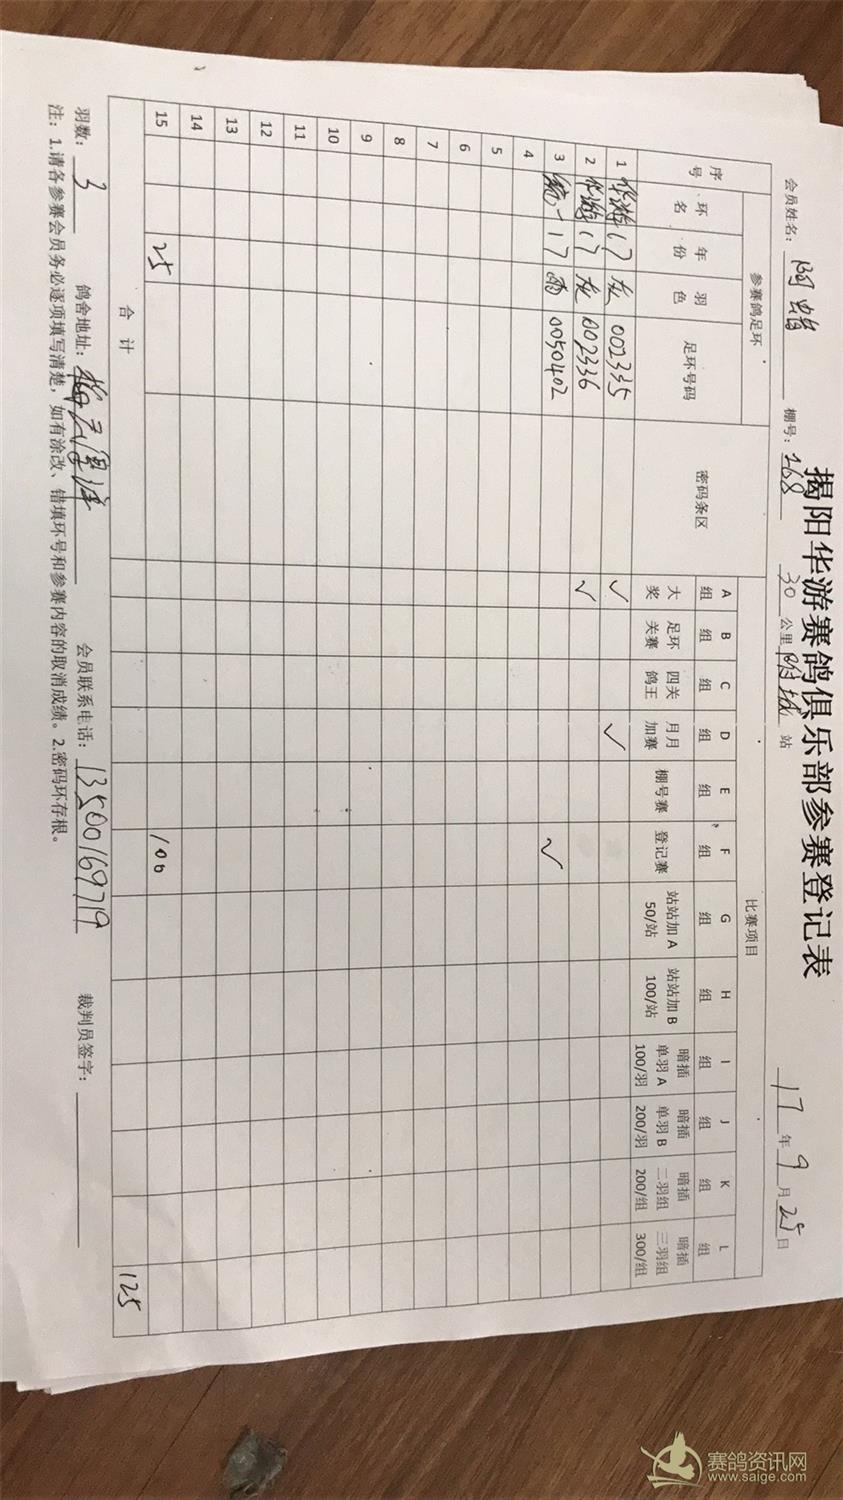 揭阳华游赛鸽俱乐部参赛登记表
会员姓名: 阿 棚号: 268 30 公里 附城 站 17 年 9 月 25 日
序号 参赛鸽足环 密码条区 比赛项目
环名 年份 羽色 足环号码 A组 B组 C组 D组 E组 F组 G组 H组 I组 J组 K组 L组
大奖 足环关赛 四关鸽王 月月加赛 棚号赛 登记赛 站站加A 50/站 站站加B 100/站 暗插单羽A 100/羽 暗插单羽B 200/羽 暗插二羽组 200/组 暗插三羽组 300/组
1 华游 17 灰 002335 ✓ ✓
2 华游 17 灰 002336 ✓
3 统一 17 雨 0050402 ✓
4
5
6
7
8
9
10
11
12
13
14
15 25 100
合计 125
羽数: 3 鸽舍地址: 梅云 会员联系电话: 13500169719 裁判员签字:
注: 1.请各参赛会员务必逐项填写清楚，如有涂改、错填环号和参赛内容的取消成绩。2.密码环存根。
赛鸽资讯网
www.saige.com